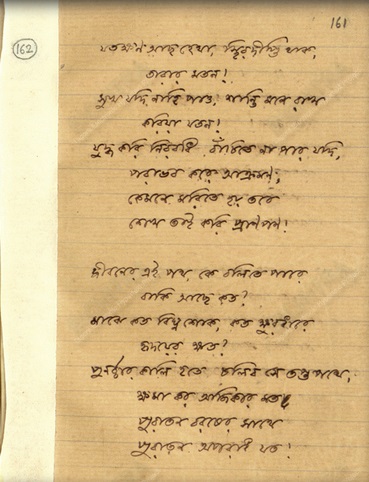 161
162
যতক্ষণ আছ হেথা, স্থিরদীপ্তি থাক,
তারার মতন!
সুখ যদি নাহি পাও, শান্তি মনে রাখ
করিয়া যতন!
যুদ্ধ করি নিরবধি বাঁচিতে না পার যদি,
পরাভব করে আক্রমণ,
কেমনে মরিতে হয় তবে
শেখ তাই করি প্রাণপণ!
জীবনের এই পথ, কে বলিতে পারে
বাকি আছে কত?
মাঝে কত বিঘ্ন শোক, কত ক্ষুরধারে
হৃদয়ের ক্ষত?
পুনর্ব্বার কালি হতে চলিব সে তপ্ত পথে,
ক্ষমা কর আজিকার মত
পুরাতন বরষের সাথে
পুরাতন অপরাধ যত!